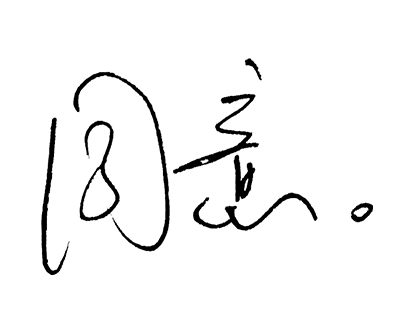 同意。